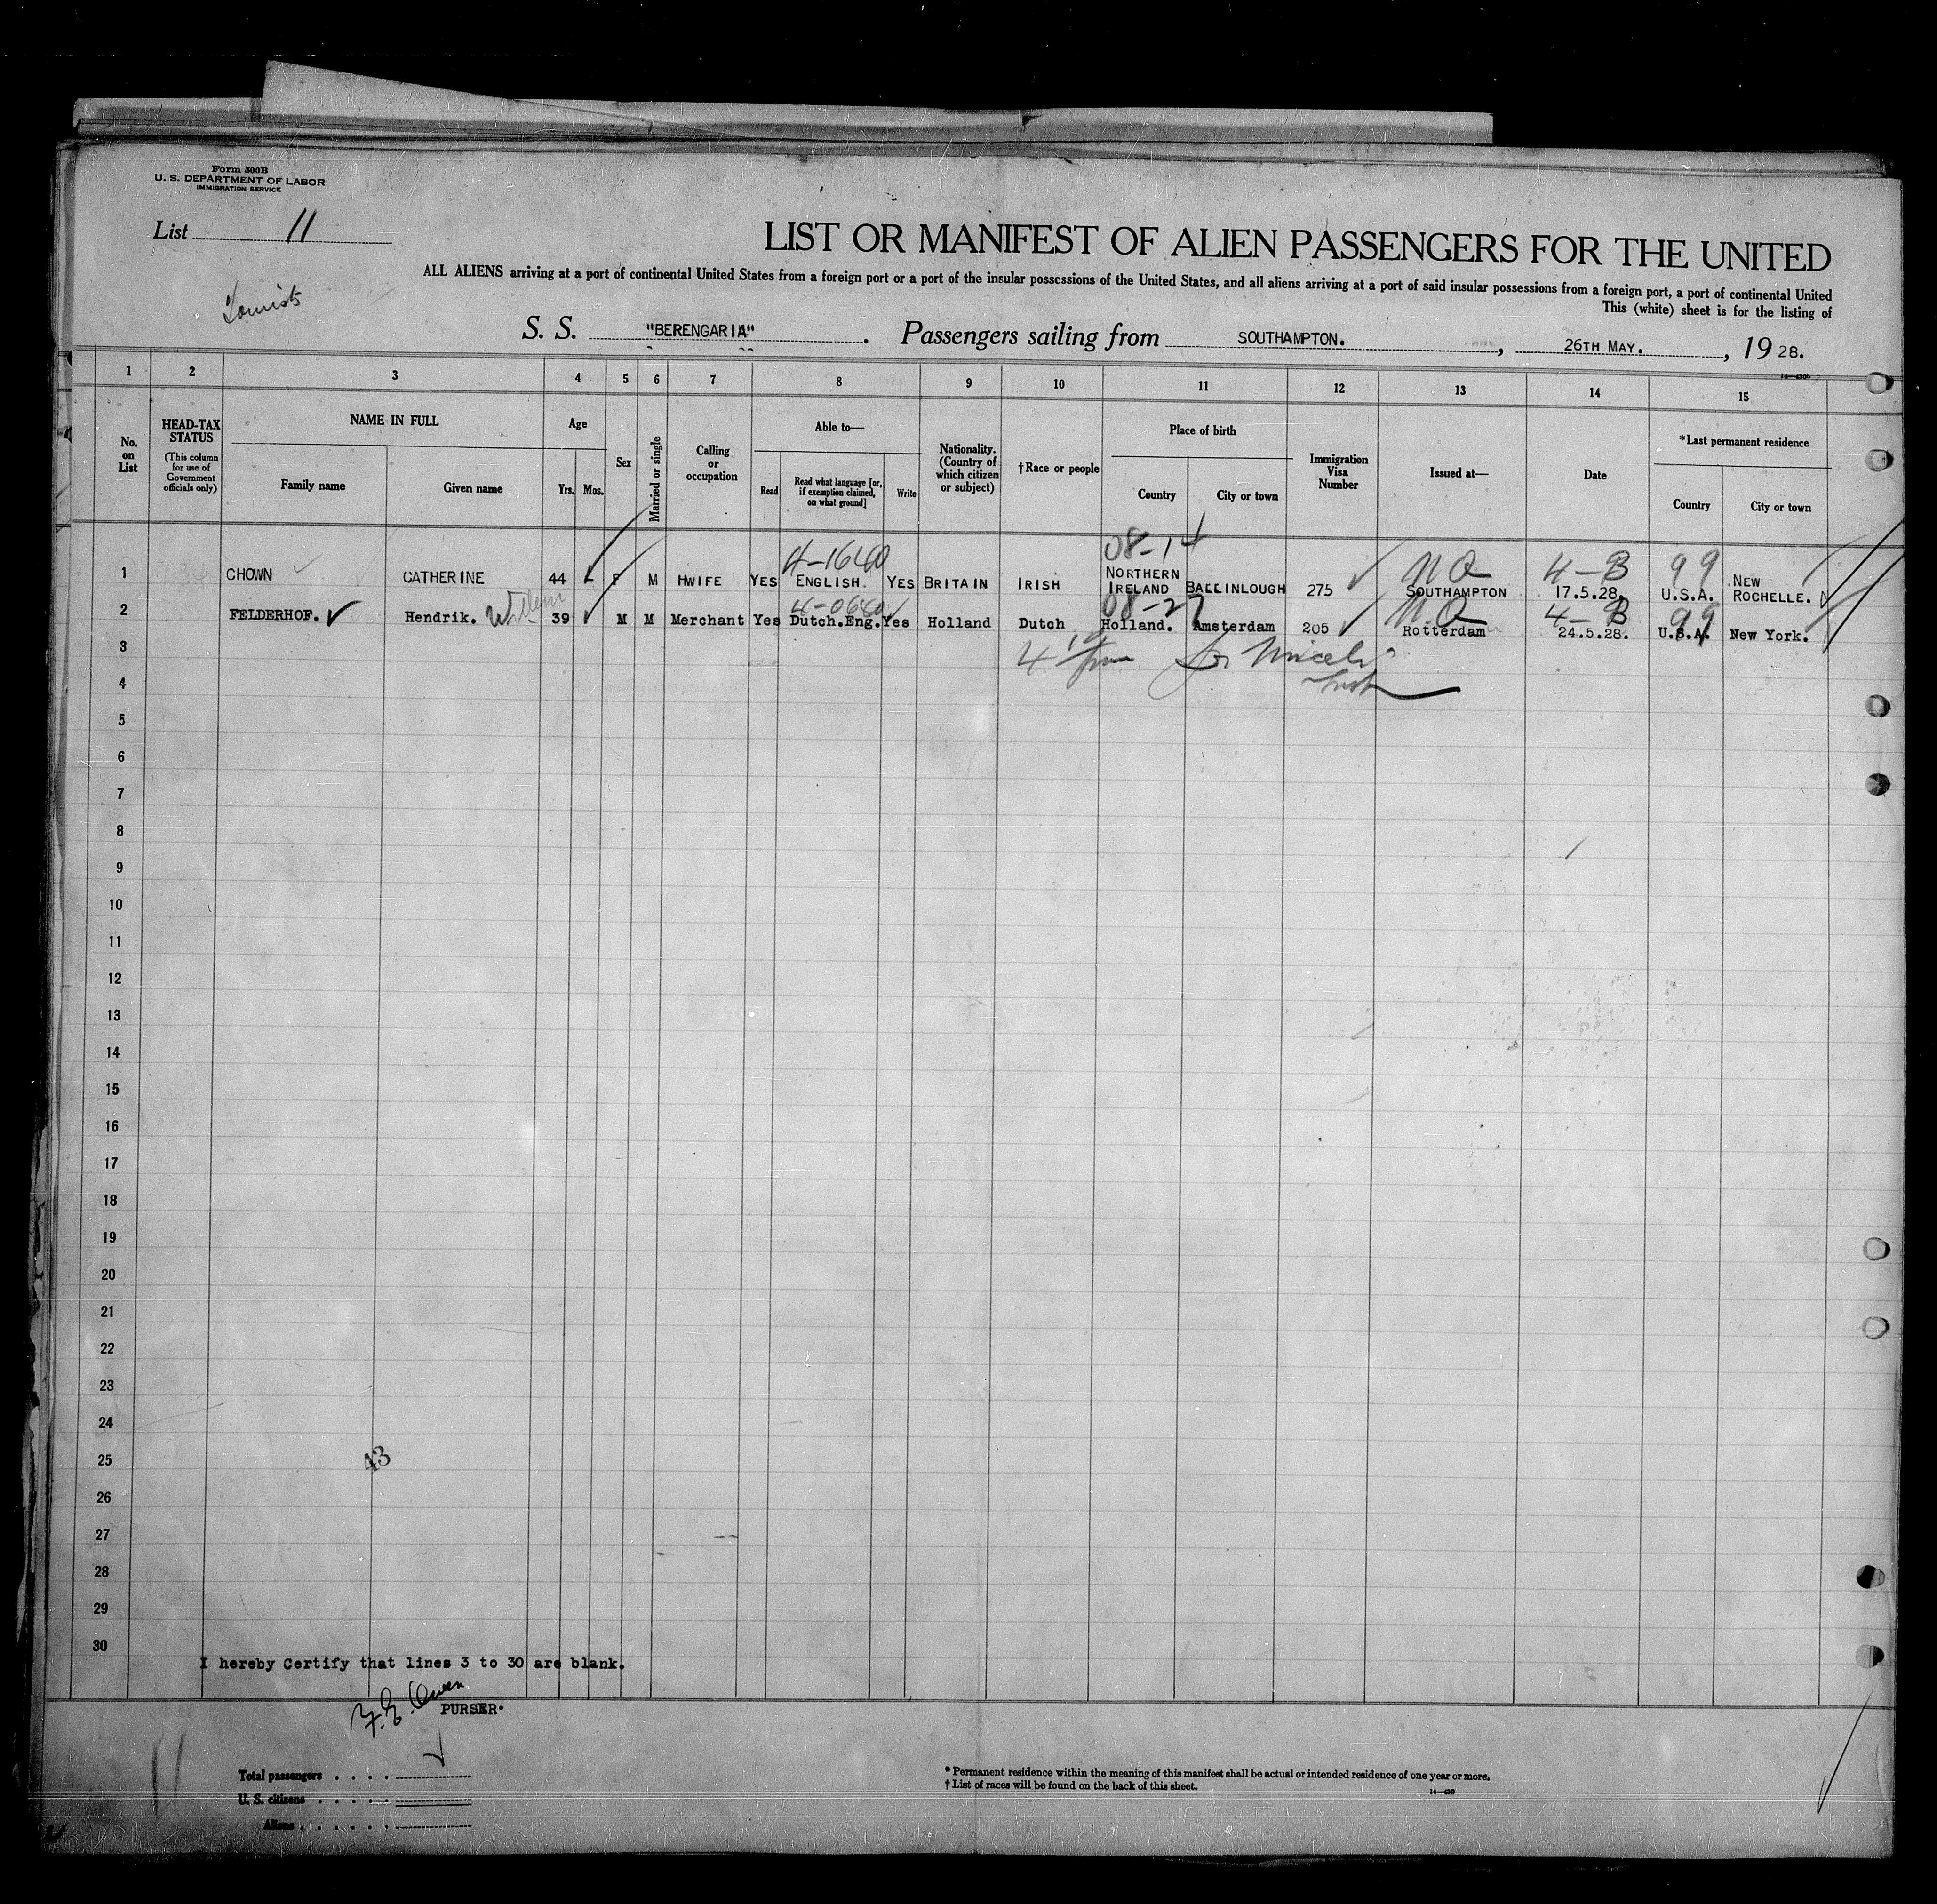 Form 500B
U. S. DEPARTMENT OF LABOR
IMMIGRATION SERVICE
List 11
LIST OR MANIFEST OF ALIEN PASSENGERS FOR THE UNITED
ALL ALIENS arriving at a port of continental United States from a foreign port or a port of the insular possessions of the United States, and all aliens arriving at a port of said insular possessions from a foreign port, a port of continental United
This (white) sheet is for the listing of
Tourists
S. S. "BERENGARIA". Passengers sailing from SOUTHAMPTON., 26TH MAY., 19 28.
1 2 3 4 5 6 7 8 9 10 11 12 13 14 15
No. on List
HEAD-TAX STATUS
(This column for use of Government officials only)
NAME IN FULL
Family name
Given name
Age
Yrs. Mos.
Sex
Married or single
Calling or occupation
Able to—
Read
Read what language [or, if exemption claimed, on what ground]
Write
Nationality. (Country of which citizen or subject)
†Race or people
Place of birth
Country
City or town
Immigration Visa Number
Issued at—
Date
*Last permanent residence
Country
City or town
4-1640 08-14 NQ 4-B 99
1 CHOWN CATHERINE 44 F M HWIFE YES ENGLISH. YES BRITAIN IRISH NORTHERN IRELAND BALLINLOUGH 275 SOUTHAMPTON 17.5.28. U.S.A. NEW ROCHELLE.
4-0640 08-27 N.Q 4-B 99
2 FELDERHOF. Hendrik. Willem 39 M M Merchant Yes Dutch.Eng. Yes Holland Dutch Holland. Amsterdam 205 Rotterdam 24.5.28. U.S.A. New York.
3
4
5
6
7
8
9
10
11
12
13
14
15
16
17
18
19
20
21
22
23
24
25
43
26
27
28
29
30
I hereby Certify that lines 3 to 30 are blank.
F.E. Owen
PURSER.
11
Total passengers
U. S. citizens
Aliens
* Permanent residence within the meaning of this manifest shall be actual or intended residence of one year or more.
† List of races will be found on the back of this sheet.
14—430